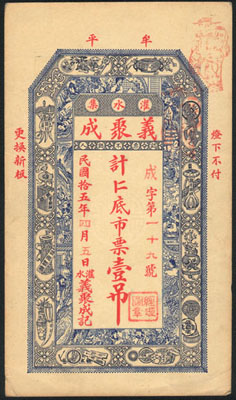 牟平
灌水集
義聚成
燈下不付
更換新板
成字第一十九號
計仁底市票壹吊
民國拾五年四月五日
灌水義聚成記